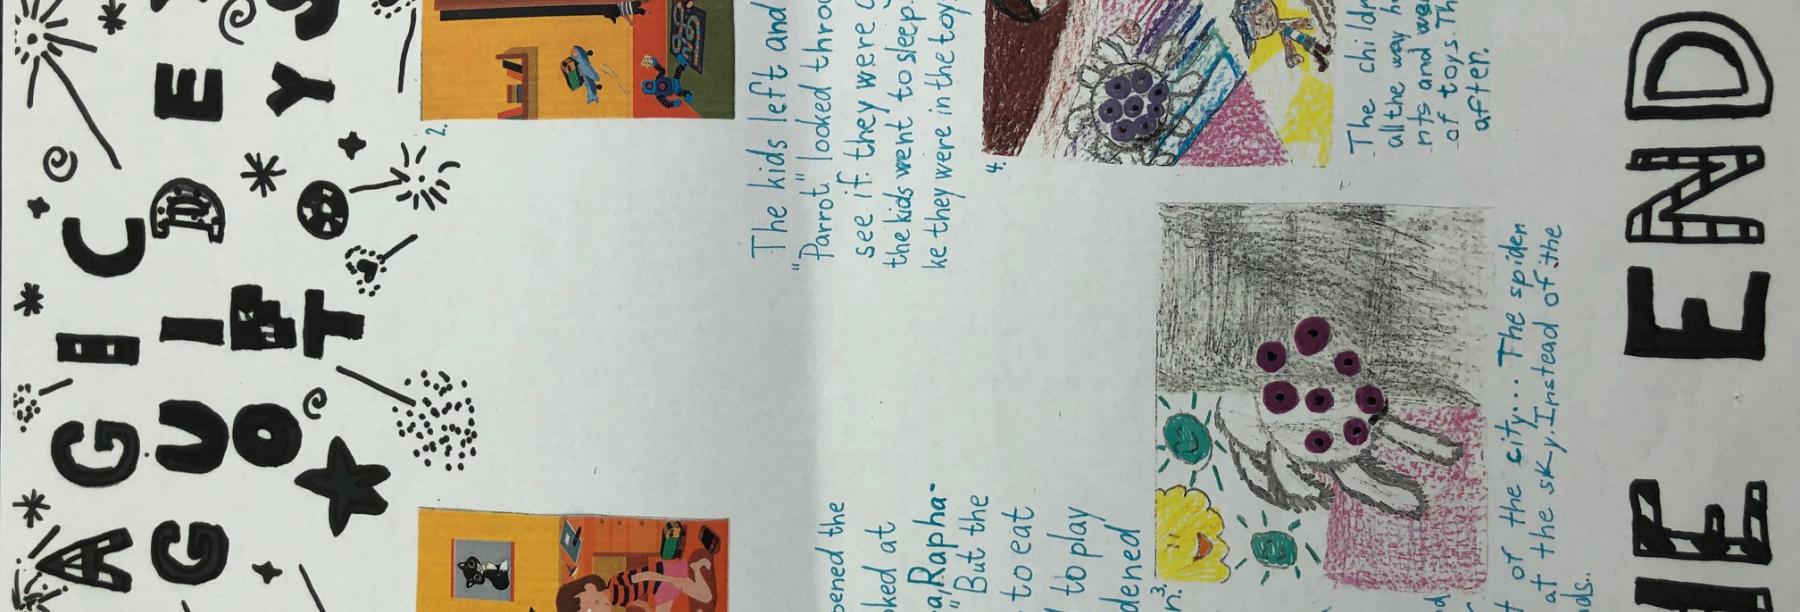 AGIC
GUIDE
OF TOYS
2.
The kids left and
"Parrot" looked throu
see if they were
the kids went to sleep.
ke they were in the toy
pened the
ked at
a, Rapha-
" But the
to eat
to play
dened
n.
3.
of the city... The spider
at the sky. Instead of the
nds.
4.
The childr
all the way h
nts and we
of toys. Th
after.
HE END